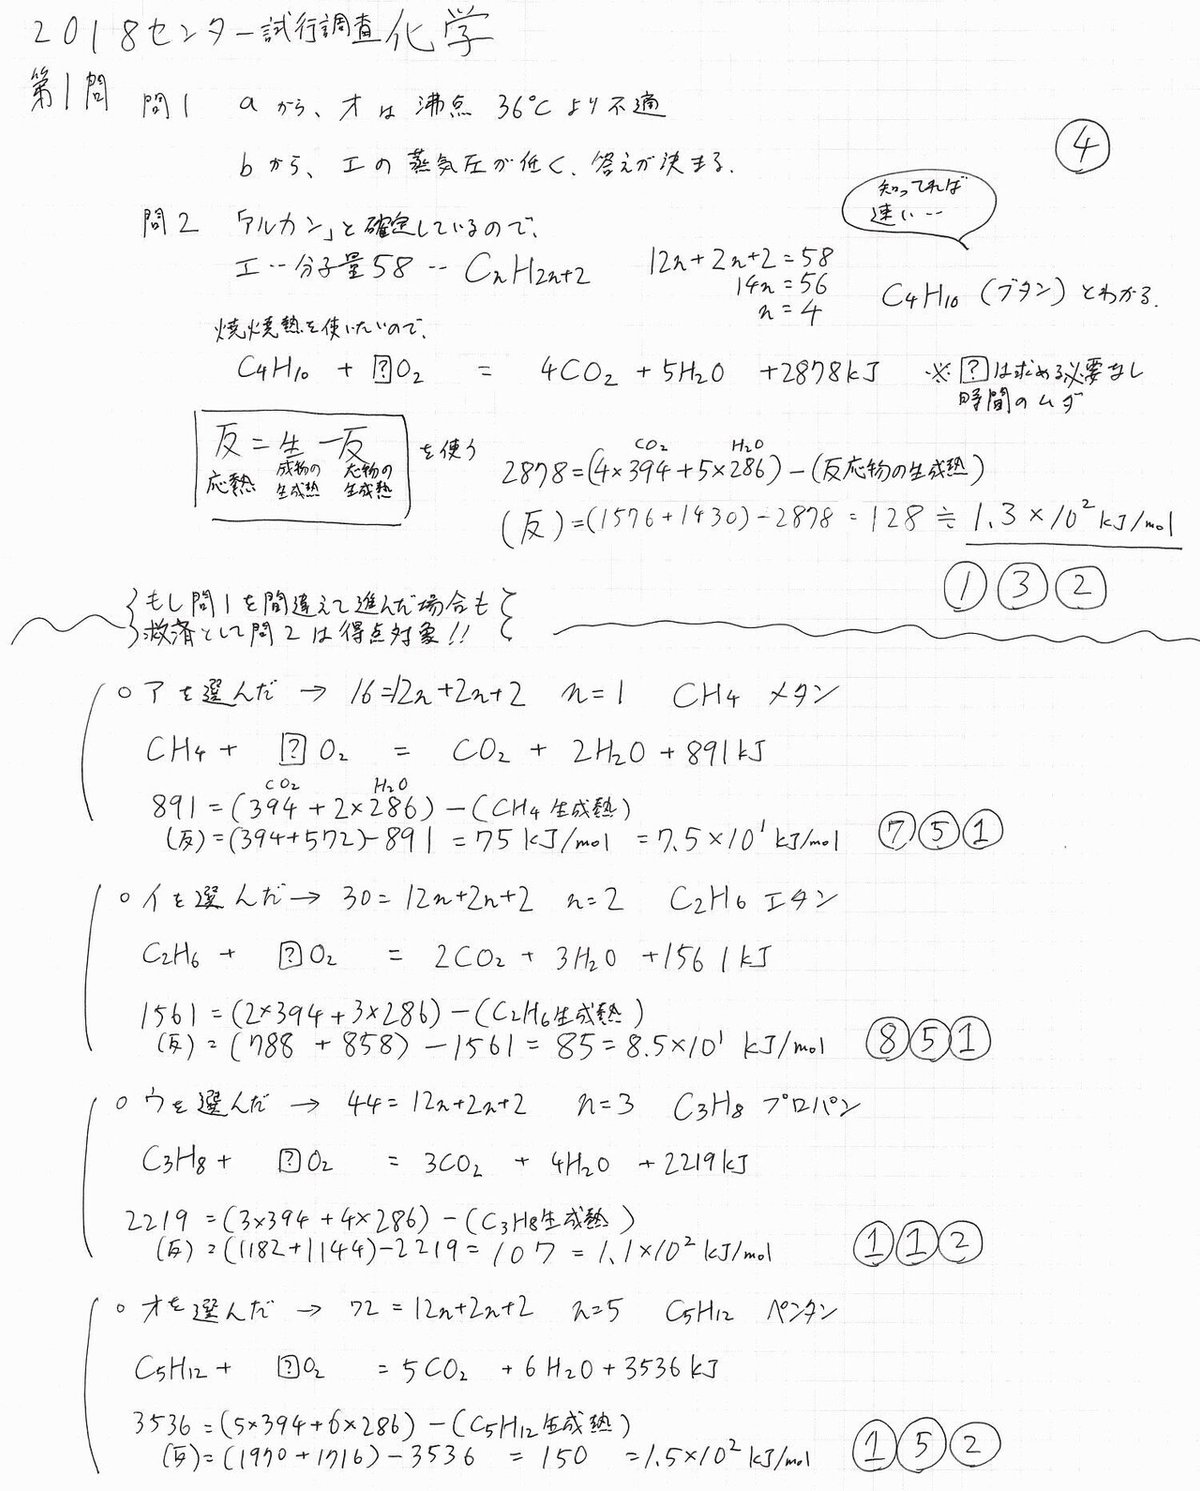 2018センター試行調査 化学
第1問
問1 aから、オは沸点 36℃より不適
bから、エの蒸気圧が低く、答えが決まる.
④
問2 「アルカン」と確定しているので、
知ってれば
速い…
エ…分子量58 … CnH2n+2
12n+2n+2=58
14n=56
n=4
C4H10 (ブタン)とわかる.
焼焼熱を使いたいので、
C4H10 + ?O2 = 4CO2 + 5H2O + 2878kJ
※?は求める必要なし
時間のムダ
反=生-反
応熱 成物の生成熱 応物の生成熱
を使う
CO2 H2O
2878=(4×394+5×286)-(反応物の生成熱)
(反)=(1576+1430)-2878=128≒1.3×10²kJ/mol
①③②
もし問1を間違えて進んだ場合も
救済として問2は得点対象!!
○アを選んだ → 16=12n+2n+2 n=1 CH4 メタン
CH4 + ?O2 = CO2 + 2H2O + 891kJ
CO2 H2O
891=(394+2×286)-(CH4生成熱)
(反)=(394+572)-891=75kJ/mol=7.5×10¹kJ/mol
⑦⑤①
○イを選んだ → 30=12n+2n+2 n=2 C2H6 エタン
C2H6 + ?O2 = 2CO2 + 3H2O + 1561kJ
1561=(2×394+3×286)-(C2H6生成熱)
(反)=(788+858)-1561=85=8.5×10¹kJ/mol
⑧⑤①
○ウを選んだ → 44=12n+2n+2 n=3 C3H8 プロパン
C3H8 + ?O2 = 3CO2 + 4H2O + 2219kJ
2219=(3×394+4×286)-(C3H8生成熱)
(反)=(1182+1144)-2219=107=1.1×10²kJ/mol
①①②
○オを選んだ → 72=12n+2n+2 n=5 C5H12 ペンタン
C5H12 + ?O2 = 5CO2 + 6H2O + 3536kJ
3536=(5×394+6×286)-(C5H12生成熱)
(反)=(1970+1716)-3536=150=1.5×10²kJ/mol
①⑤②